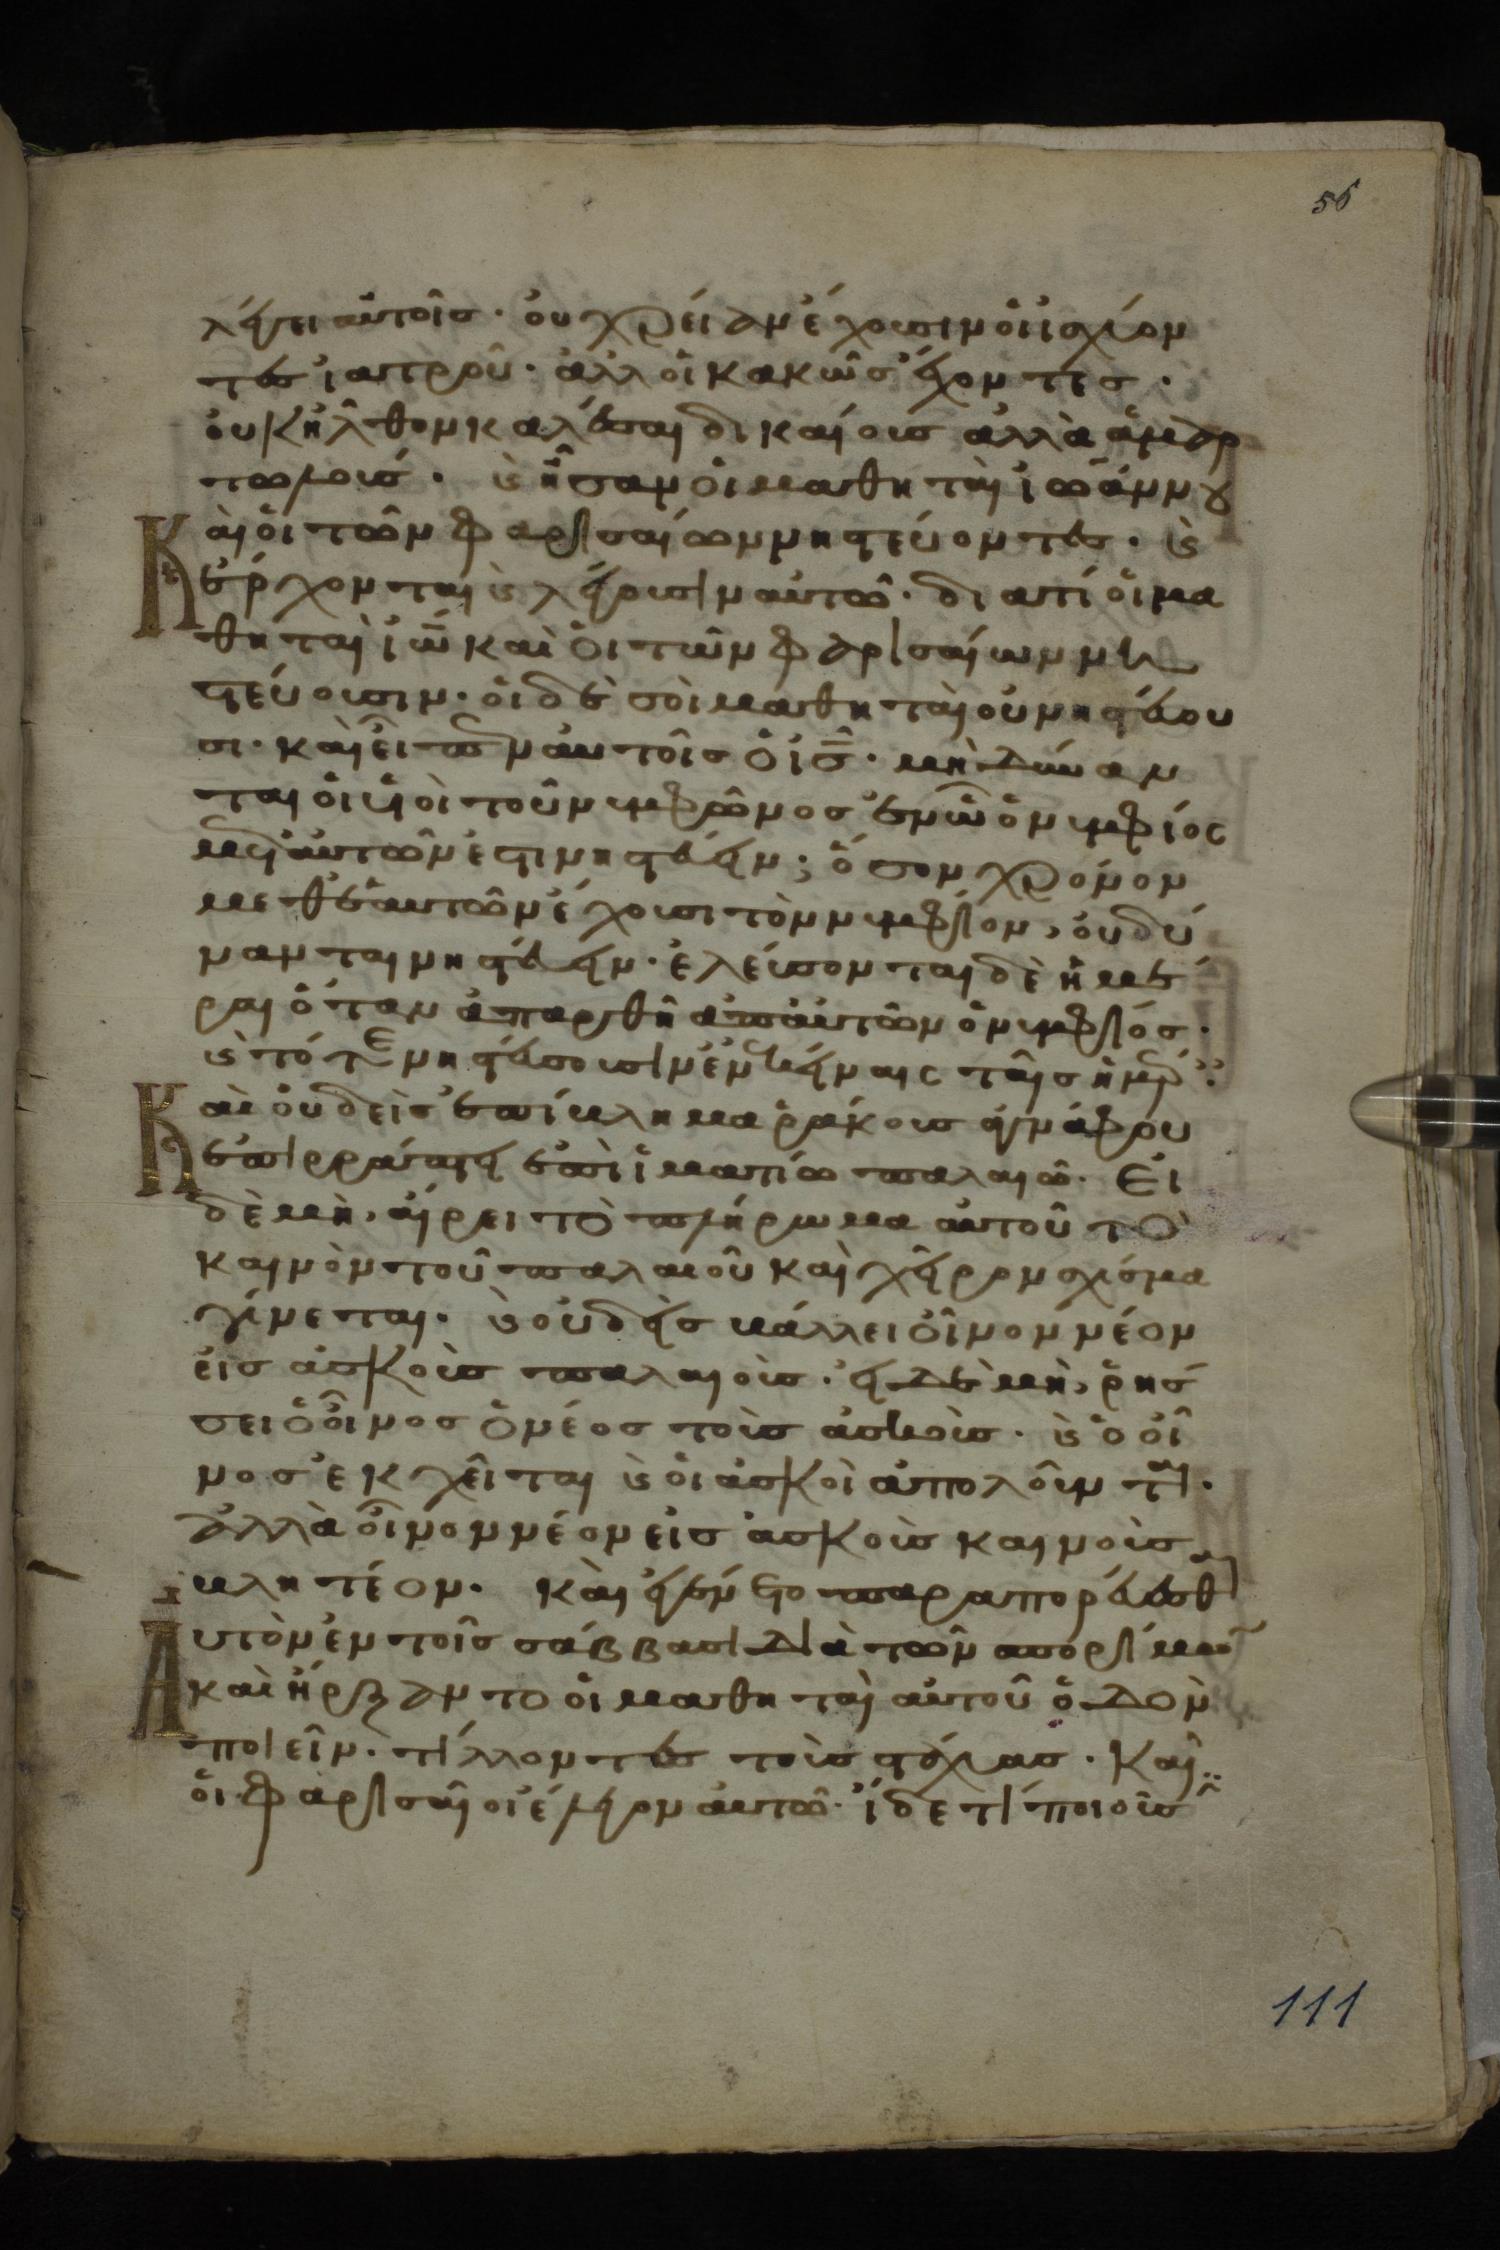 56
λέγει αὐτοῖσ· οὐ χρείαν ἔχουσιν οἱ ἰσχύον
τες ἰατροῦ· ἀλλ οἱ κακῶσ ἔχοντεσ·
οὐκ ἦλθον καλέσαι δικαίους ἀλλὰ ἁμαρ
τωλούς· κ ἦσαν οἱ μαθηταὶ ἰωάννου
Καὶ οἱ τῶν φαρισαίων νηστεύοντες· κ
ἔρχονται κ λέγουσιν αὐτῶ· διατί οἱ μα
θηταὶ ἰω̅ καὶ οἱ τῶν φαρισαίων νη
στεύουσιν· οἱ δὲ σοὶ μαθηταὶ οὐ νηστεύου
σι· καὶ εἶπεν αὐτοῖσ ὁ ισ̅· μὴ δύναν
ται οἱ υἱοὶ τοῦ νυμφῶνοσ ἐν ὧ ὁ νυμφίος
μετ αὐτῶν ἐστι νηστεύειν; ὅσον χρόνον
μεθ ἑαυτῶν ἔχουσι τὸν νυμφίον, οὐ δύ
νανται νηστεύειν· ἐλεύσονται δὲ ἡμέ
ραι ὅταν ἀπαρθῆ ἀπ αὐτῶν ὁ νυμφίοσ·
κ τότε νηστεύσουσιν ἐν ἐκείναις ταῖσ ἡμέρ
Καὶ οὐδεὶσ ἐπίβλημα ῥάκους ἀγνάφου
ἐπιρράπτει ἐπὶ ἱματίω παλαιῶ· Εἰ
δὲ μὴ, αἴρει τὸ πλήρωμα αὐτοῦ τὸ
καινὸν τοῦ παλαιοῦ καὶ χεῖρον σχίσμα
γίνεται· κ οὐδεὶσ βάλλει οἶνον νέον
εἰσ ἀσκοὺς παλαιοὺς· εἰ δὲ μὴ, ῥήσ
σει ὁ οἶνοσ ὁ νέοσ τοὺς ἀσκοὺς· κ ὁ οἶ
νοσ ἐκχεῖται κ οἱ ἀσκοὶ ἀπολοῦνται·
ἀλλὰ οἶνον νέον εἰσ ἀσκοὺς καινοὺς
βλητέον· καὶ ἐγένετο παραπορεύεσθαι
Αὐτὸν ἐν τοῖσ σάββασι διὰ τῶν σπορίμων
καὶ ἤρξαντο οἱ μαθηταὶ αὐτοῦ ὁδὸν
ποιεῖν· τίλλοντες τοὺς στάχυας· Καὶ
οἱ φαρισαῖοι ἔλεγον αὐτῶ· ἴδε τί ποιοῦς
111